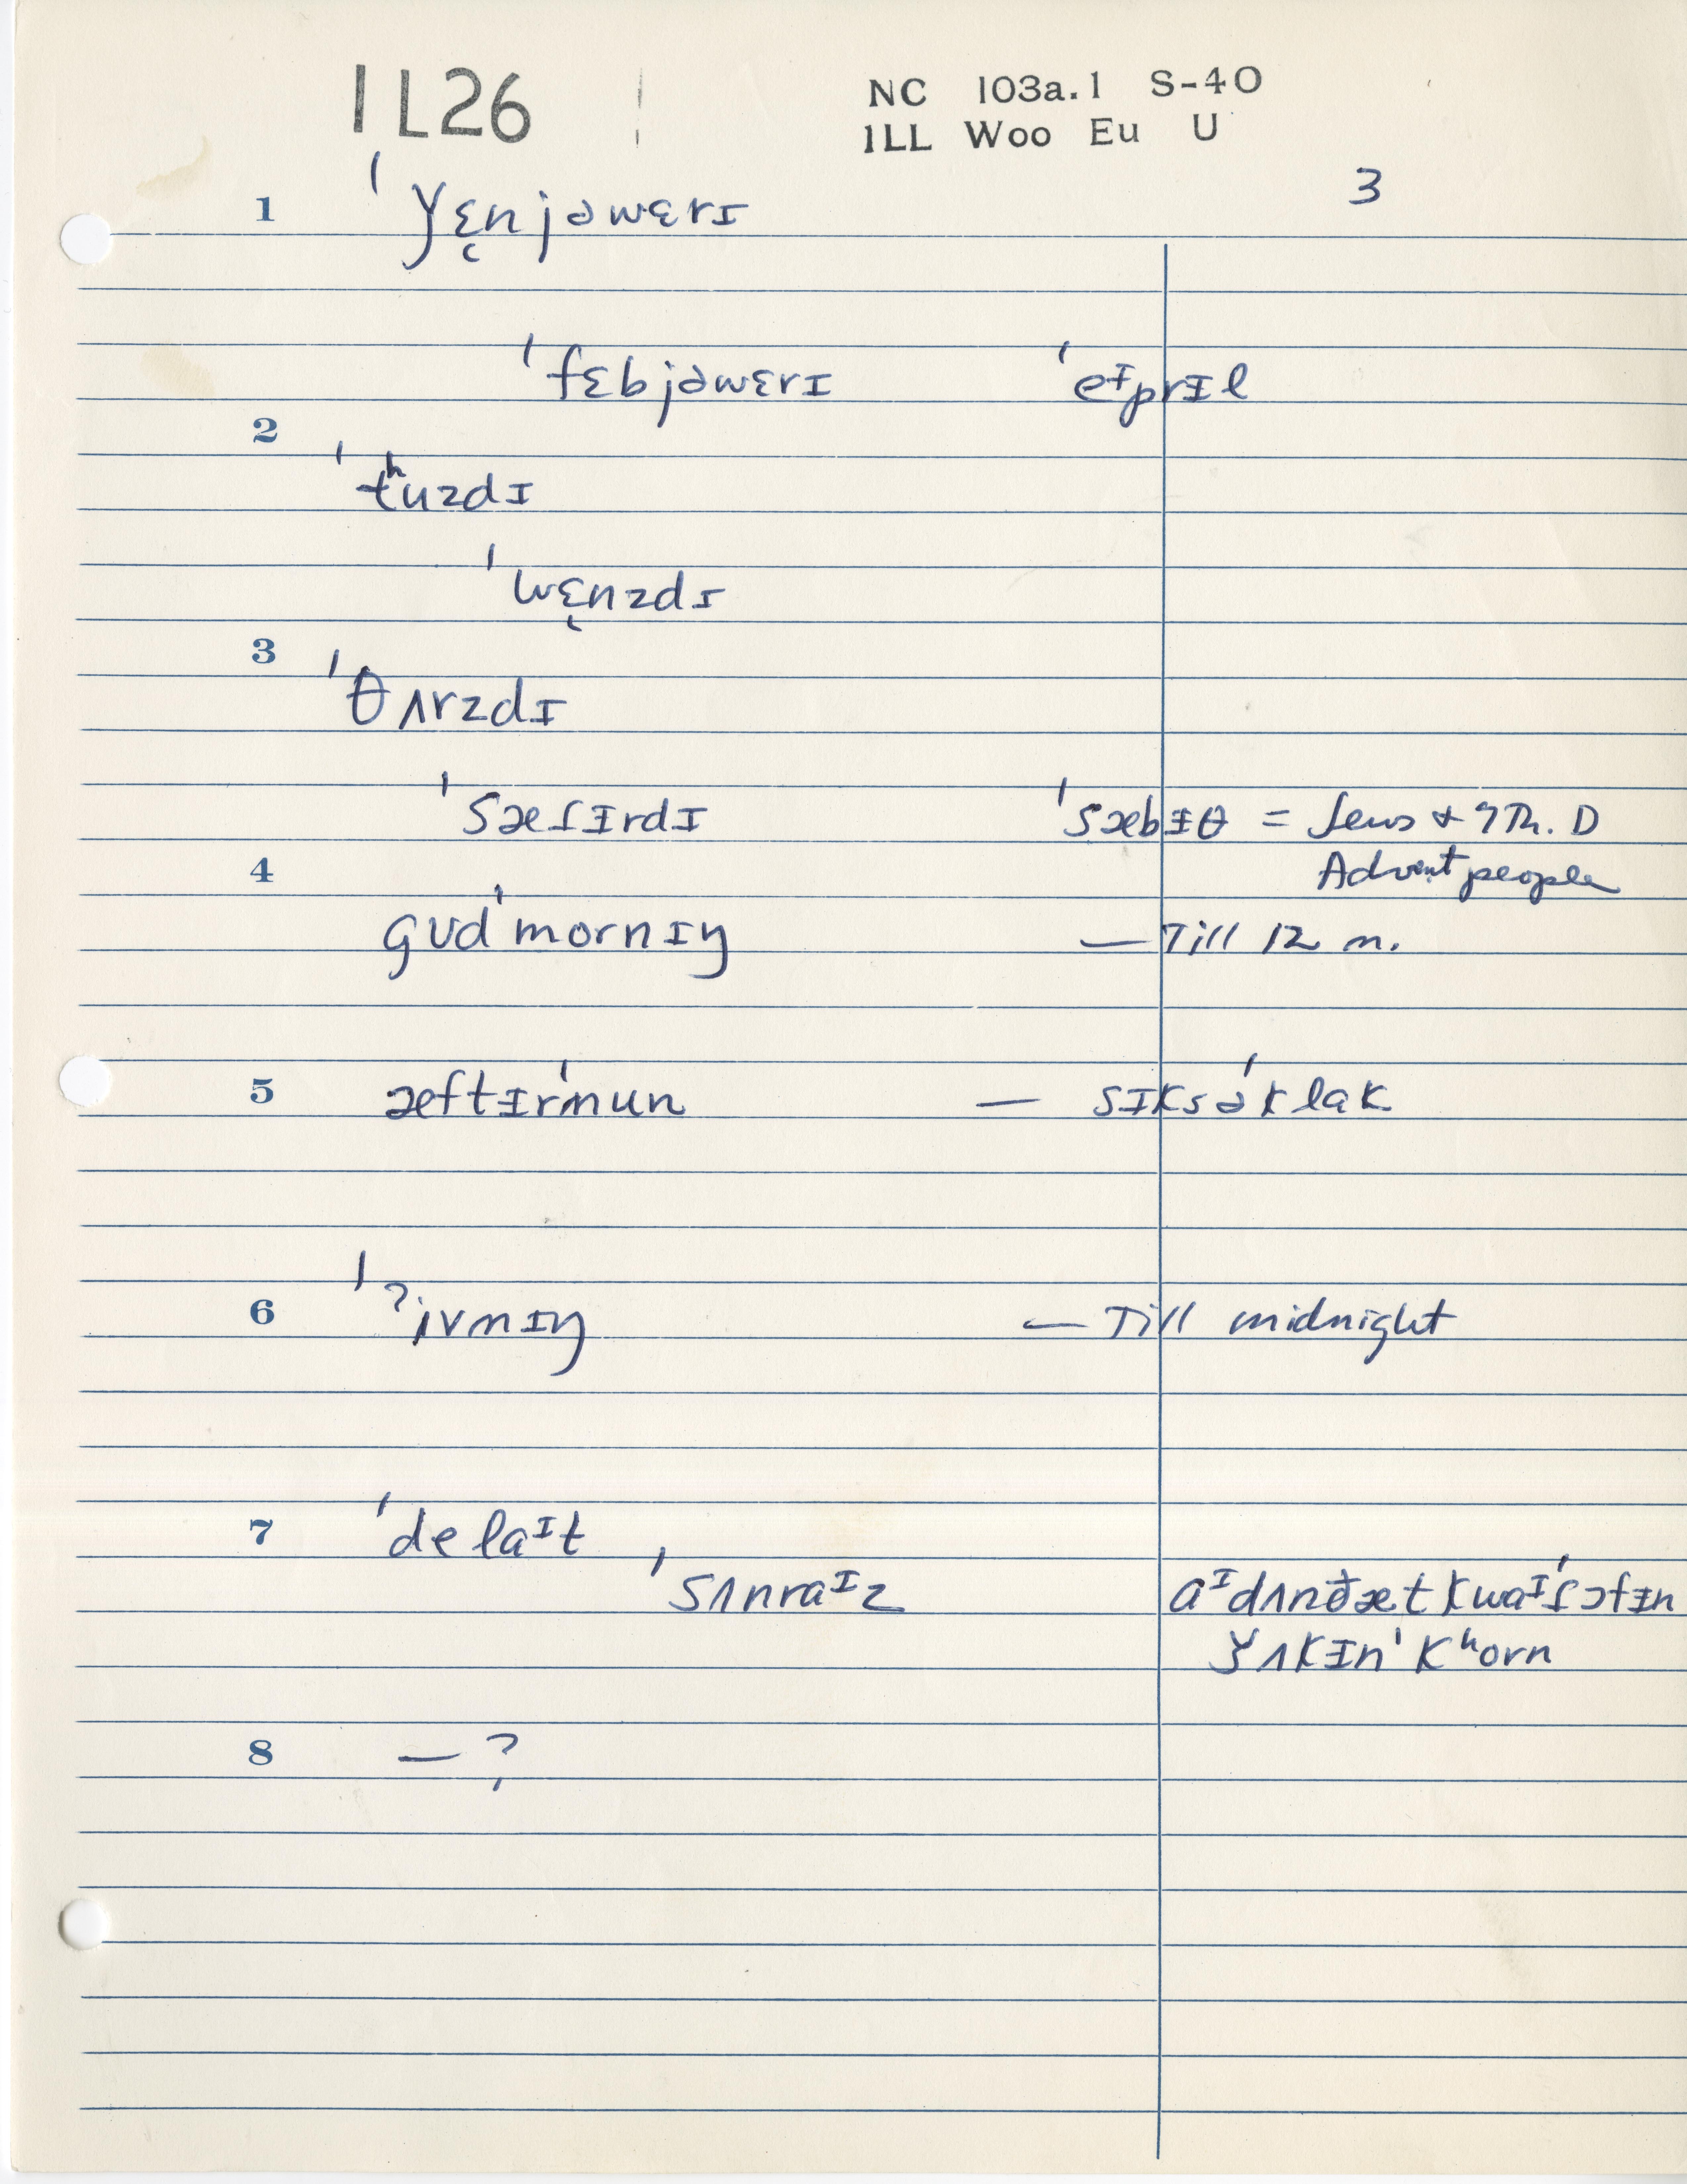 IL26
NC 103a.1 S-40
ILL Woo Eu U
3
1 ˈɣɛ̨njəwɛrɪ
ˈfɛbjəwɛrɪ ˈeᵻprᵻl
2 ˈtʰuzdɪ
ˈwɛ̨nzdɪ
3 ˈθʌrzdɪ
ˈsæɾᵻrdɪ ˈsæbᵻθ = Jews & 7Th. D
Advent people
4 gʊdˈmornɪŋ — Till 12 m.
5 æftᵻrˈmun — sɪksəˈklak
6 ˈʔivnɪŋ — Till midnight
7 ˈdelaᶦt
ˈsʌnraᶦz aᶦdʌnðætkwaᶦˈɾɔfᵻn
ʃʌkᵻnˈkʰorn
8 — ?